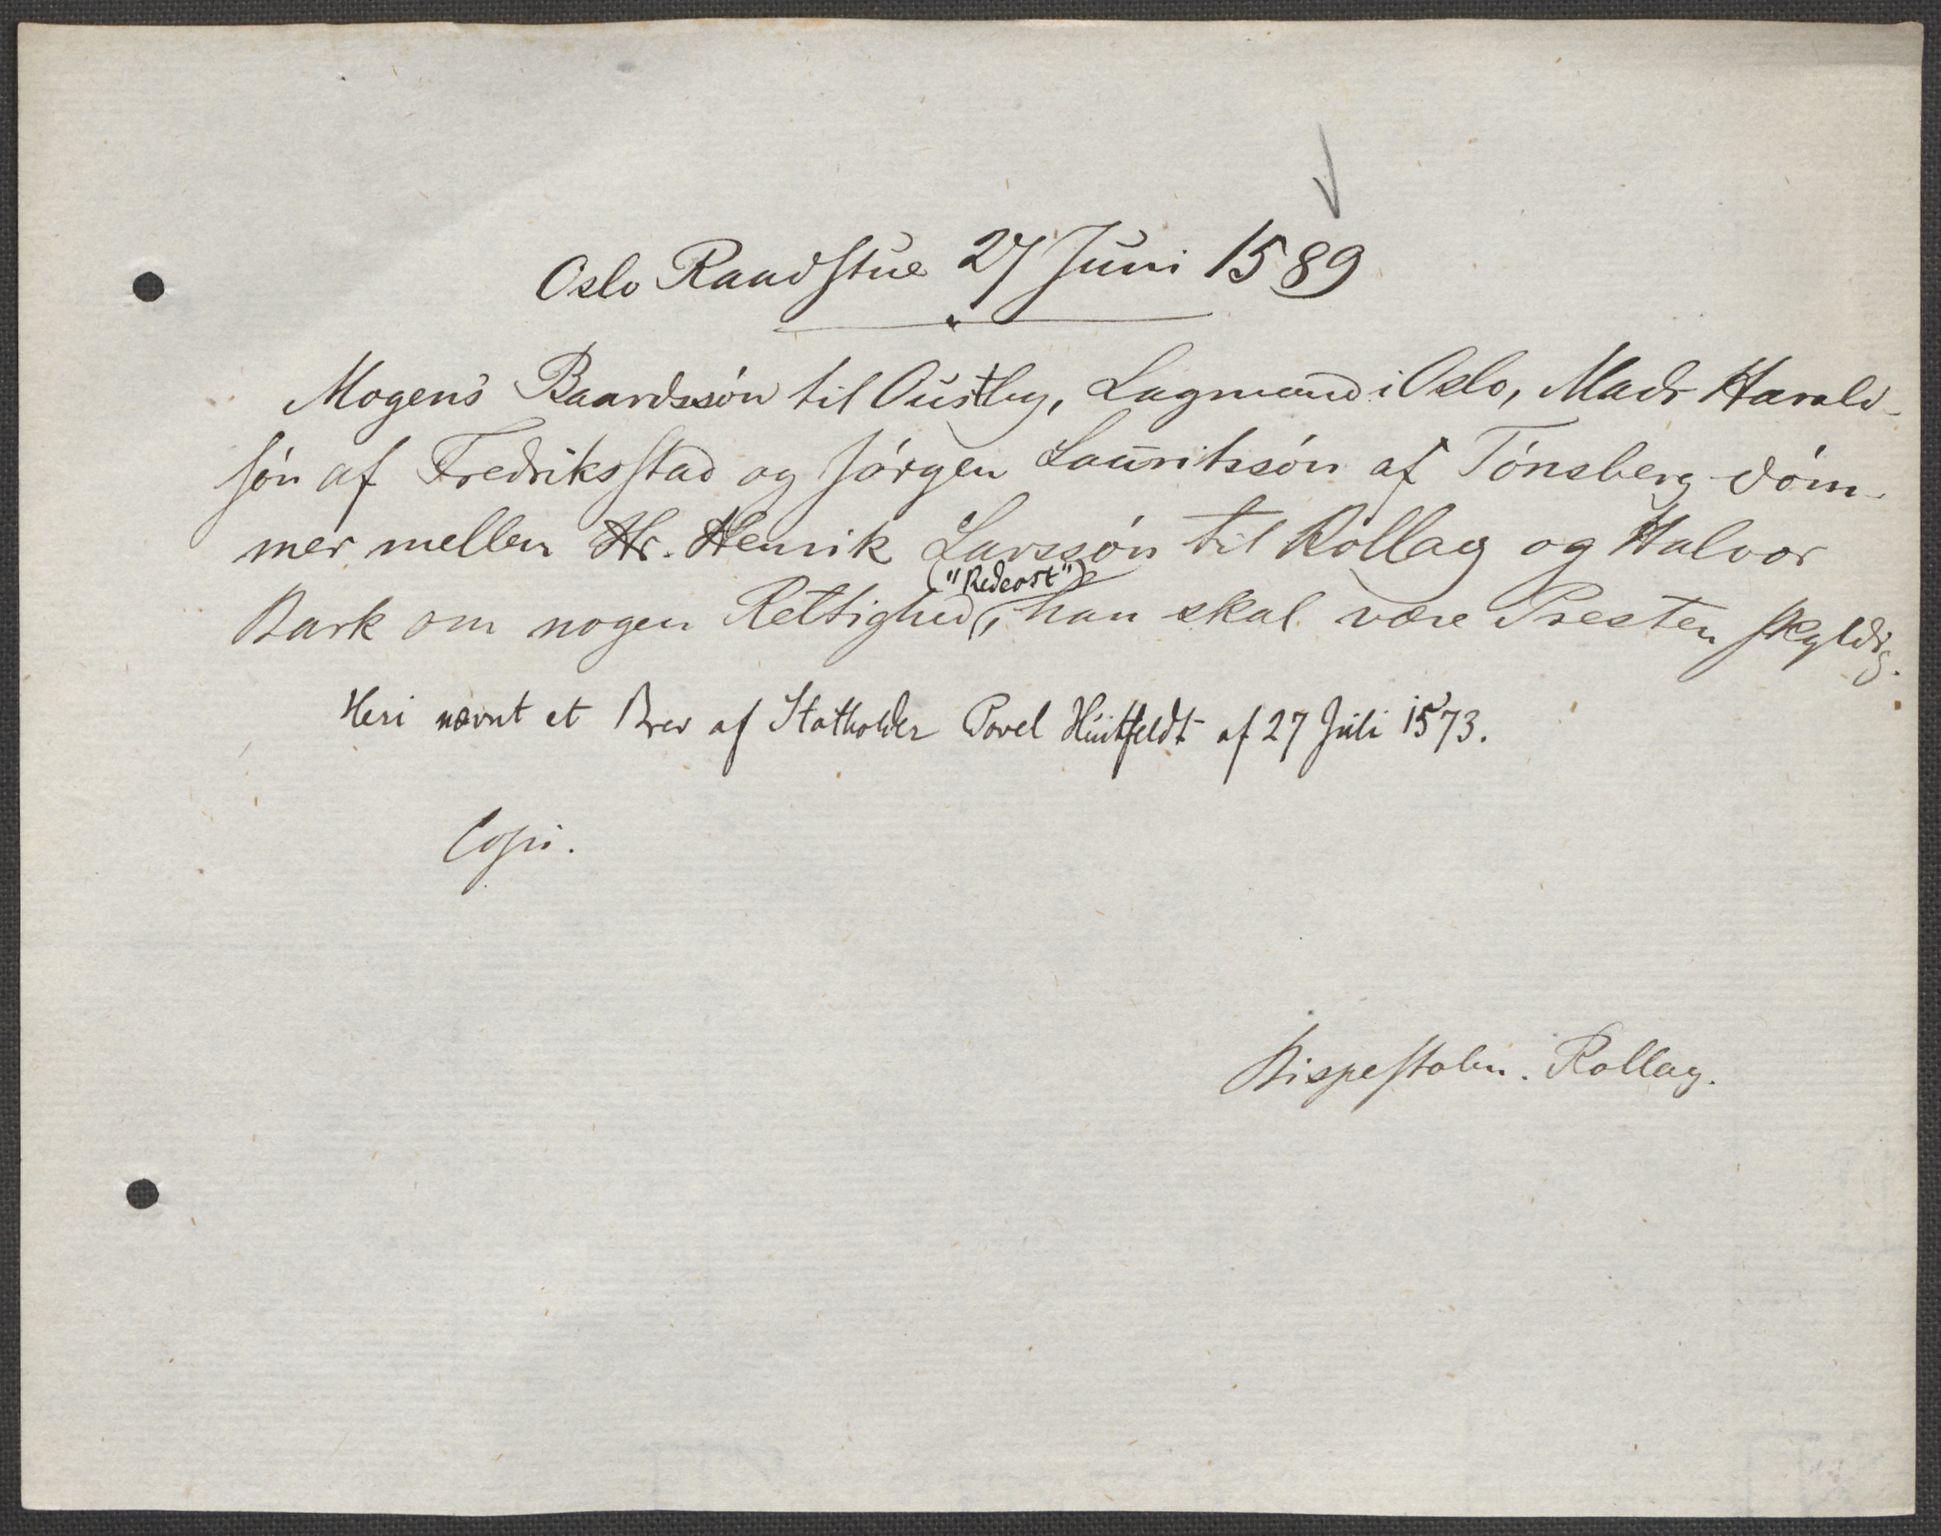 Oslo Raadstue 27 Juni 1589
Mogens Baardssön til Oustby, Lagmand i Oslo, Mads Harald-
sön af Fredriksstad og Jörgen Lauritssön af Tönsberg döm-
mer mellen Hr. Henrik Larssön til Rollag og Halvor
("Redeost")
Bark om nogen Rettighed, han skal være Presten skyldig.
Heri nævnt et Brev af Statholder Povel Huitfeldt af 27 Juli 1573.
Copi.
Bispestolen. Rollag.